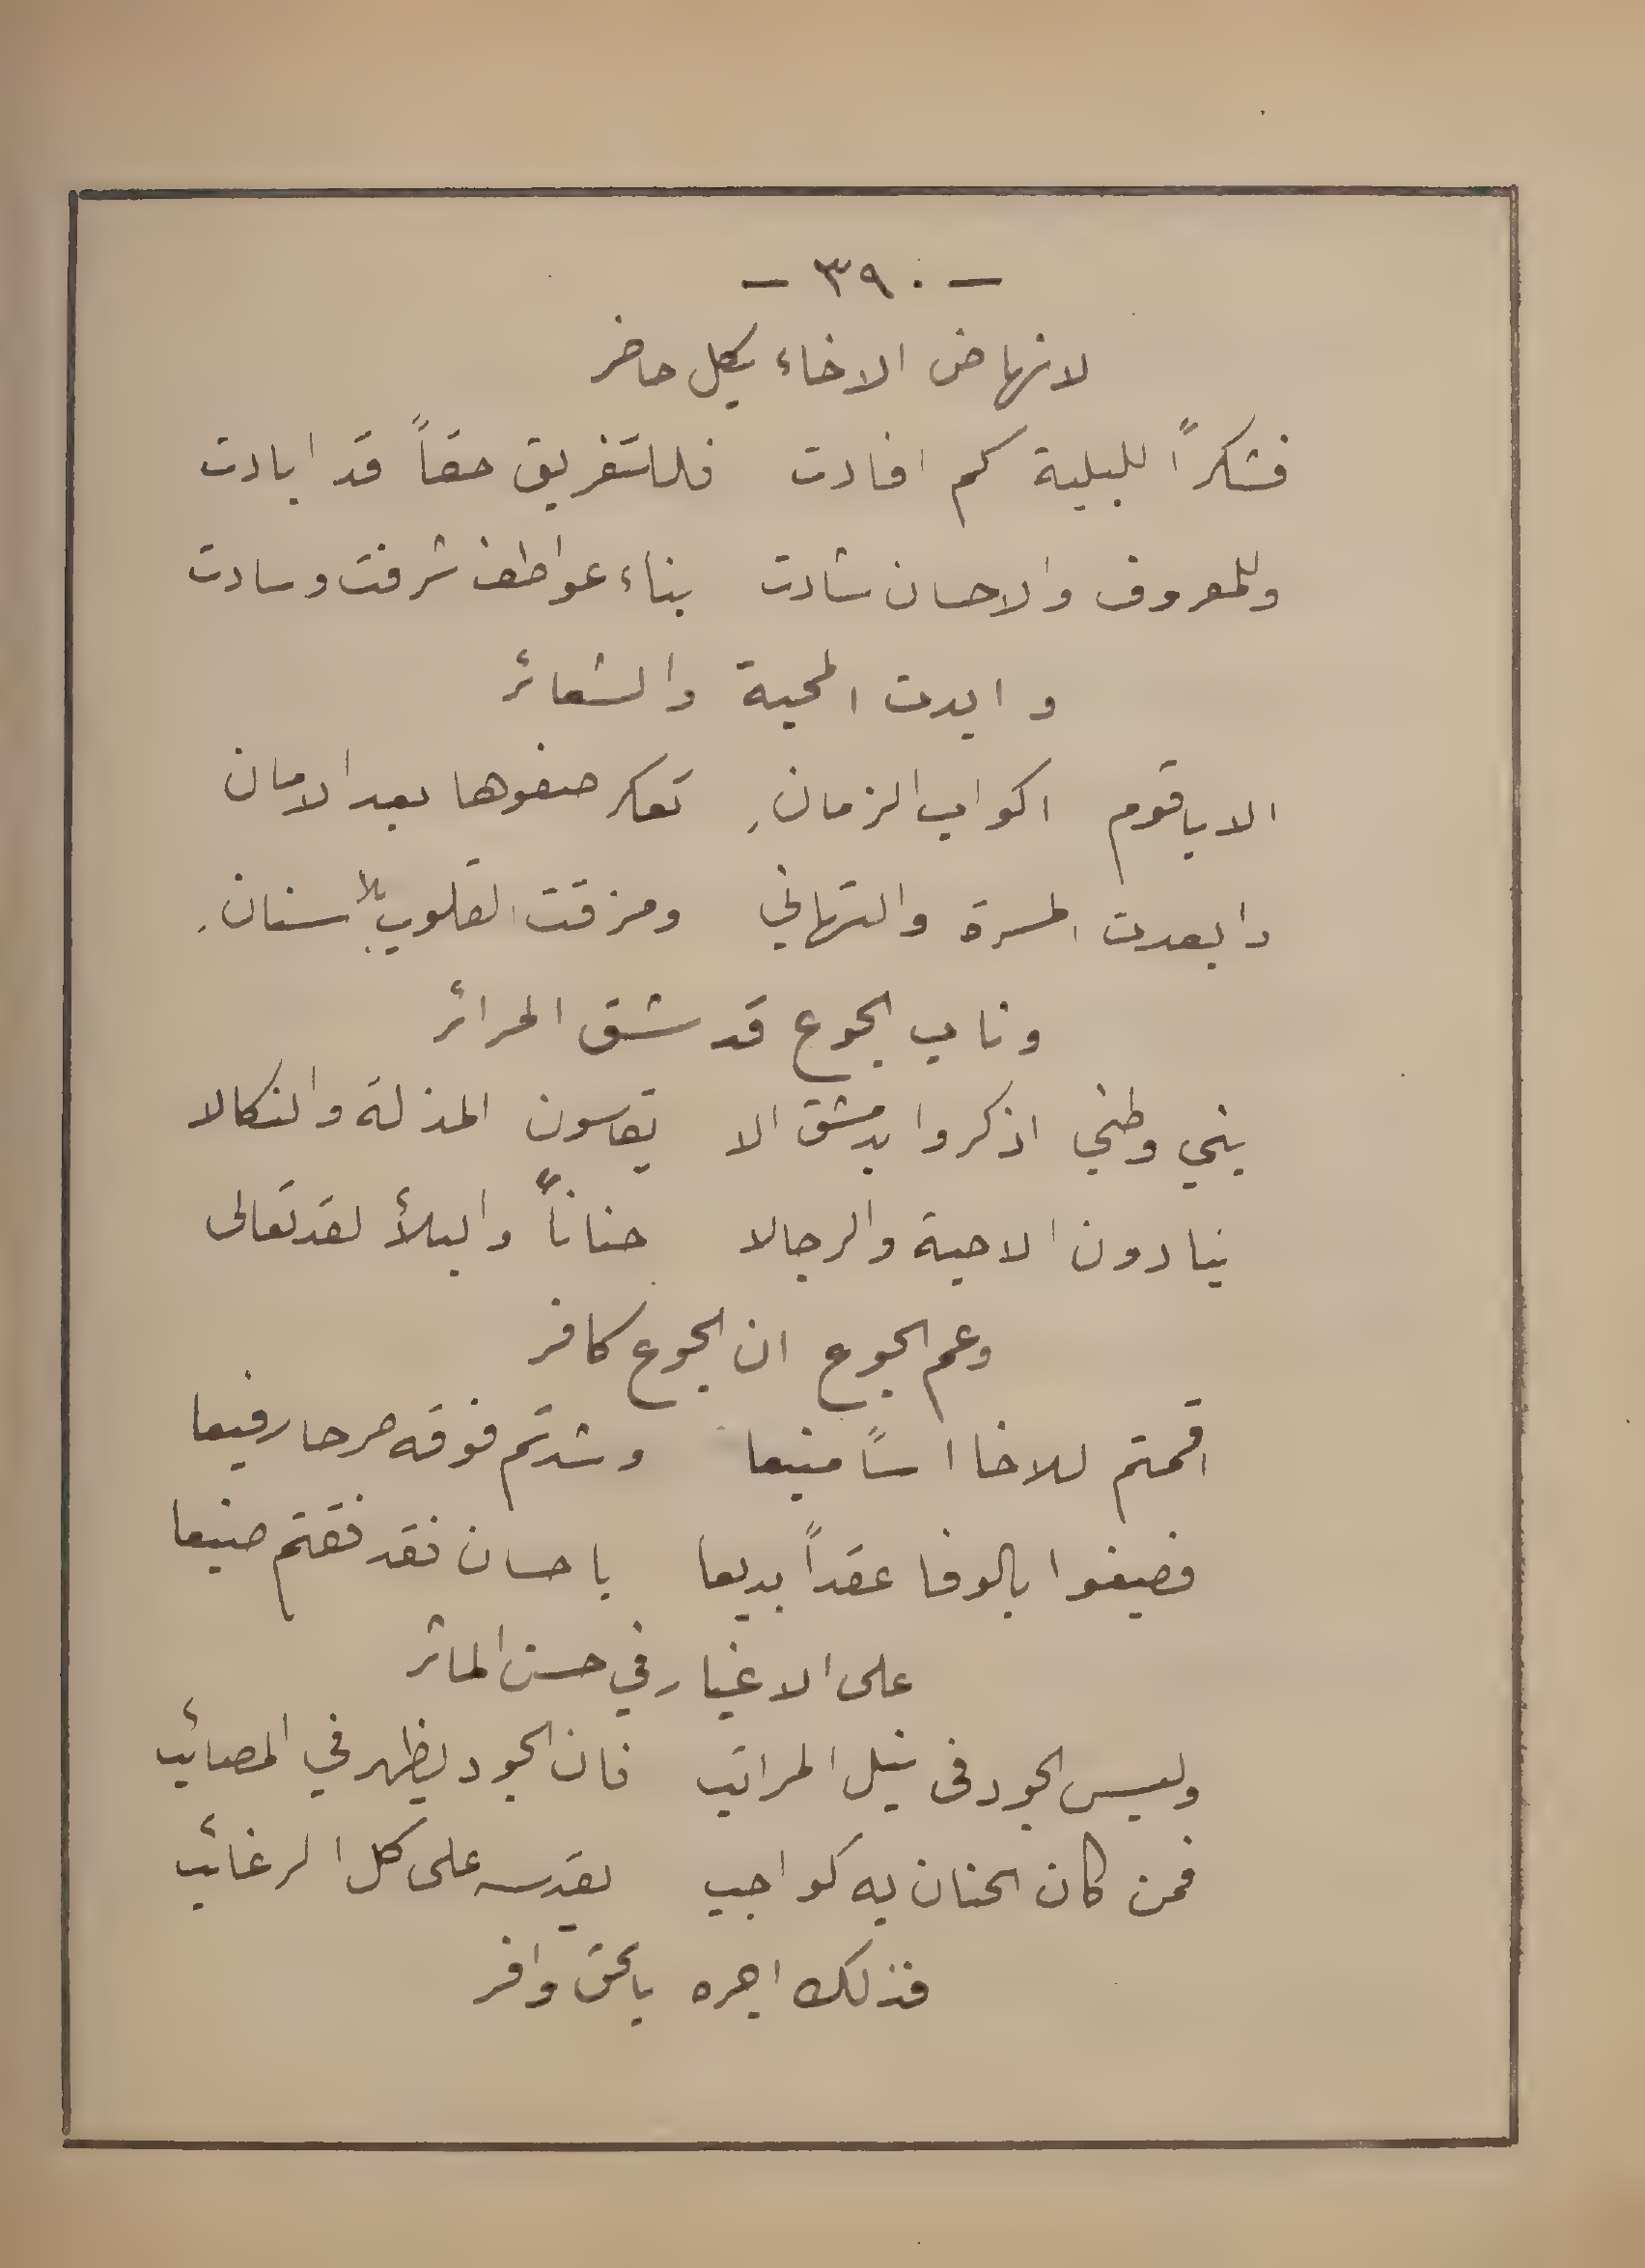 - ٣٩٠ -
لانهاض الاخاء بكل حاضر
فشكراً للبلية كم افادت فللتفريق حقاً قد ابادت
وللمعروف والاحسان شادت بناء عواطف شرفت وسادت
وايدت المحبة والشعائر
الا ياقوم اكواب الزمانِ تعكر صفوها بعد الامان
وابعدت المسرة والتهاني ومزقت القلوب بلا سنانِ
وناب الجوع قد شق الحرائر
بني وطني اذكروا بدمشق الا يقاسون المذلة والنكالا
ينادون الاحبة والرجالا حناناً والبلأ لقد تعالى
وعم الجوع ان الجوع كافر
اقمتم للاخا اساً منيعا وشدتم فوقه صرحا رفيعا
فصيغوا بالوفا عقداً بديعا باحسان فقد فقتم صنيعا
على الاغيار في حسن الماثر
وليس الجود فى نيل المراتب فان الجود يظهر في المصائب
فمن كان الحنان به كواجب يقدسه على كل الرغائب
فذلك اجره بالحق وافر